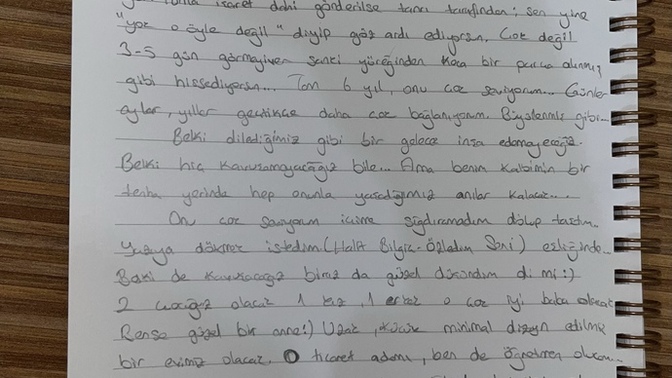 işaret dahi gönderilse tanrı tarafından; sen yine
"yok o öyle değil" diyip göz ardı ediyorsun. Çok değil
3-5 gün görmeyiver sanki yüreğinden koca bir parça alınmış
gibi hissediyorsun... Tam 6 yıl, onu çok seviyorum... Günler
aylar, yıllar geçtikçe daha çok bağlanıyorum. gibi...
Belki dilediğimiz gibi bir gelecek inşa edemeyeceğiz.
Belki hiç kavuşamayacağız bile... Ama benim kalbimin bir
tenha yerinde hep onunla yaşadığımız anılar kalacak...
Onu çok seviyorum içime sığdıramadım dolup taştım..
yazıya dökmek istedim. (Halit Bilgiç - Özledim Seni) eşliğinde..
Belki de kavuşacağız biraz da güzel düşündüm di mi :)
2 çocuğuz olacak 1 kız, 1 erkek o çok iyi baba olacak
Bense güzel bir anne :) Uzak, küçük minimal dizayn edilmiş
bir evimiz olacak. O ticaret adamı, ben de öğretmen olucam...